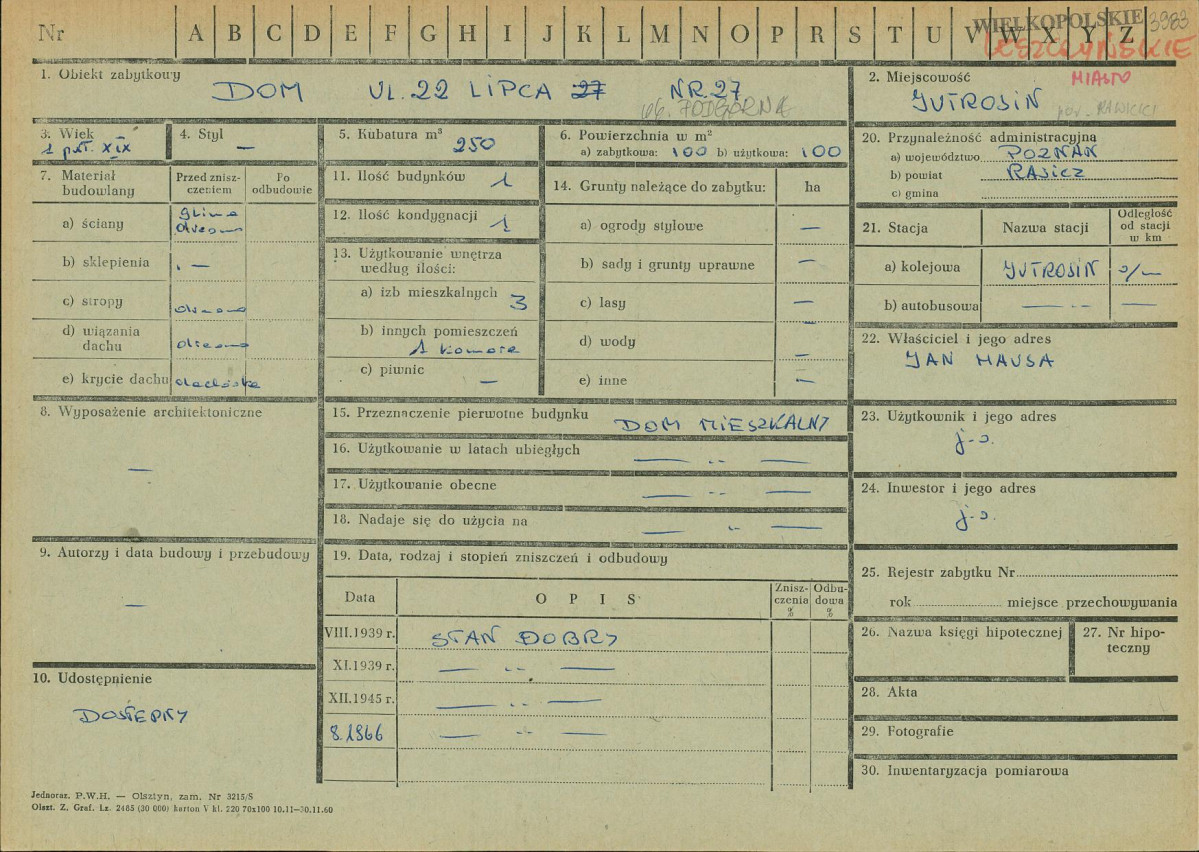 Nr A B C D E F G H I J K L M N O P R S T U V W X Y Z
WIELKOPOLSKIE 3983
LESZCZYŃSKIE
MIASTO
1. Obiekt zabytkowy
DOM UL. 22 LIPCA 27 NR. 27
ob. PODGÓRNA
2. Miejscowość
JUTROSIN
pow. RAWICZ
3. Wiek
1 poł. XIX
4. Styl
—
5. Kubatura m³
250
6. Powierzchnia w m²
a) zabytkowa: 100 b) użytkowa: 100
7. Materiał budowlany
Przed zniszczeniem
Po odbudowie
a) ściany
glina
drewno
b) sklepienia —
c) stropy drewno
d) wiązania dachu drewno
e) krycie dachu dachówka
8. Wyposażenie architektoniczne
—
9. Autorzy i data budowy i przebudowy
—
10. Udostępnienie
DOSTĘPNY
11. Ilość budynków 1
12. Ilość kondygnacji 1
13. Użytkowanie wnętrza
według ilości:
a) izb mieszkalnych 3
b) innych pomieszczeń
1 komora
c) piwnic —
14. Grunty należące do zabytku: ha
a) ogrody stylowe —
b) sady i grunty uprawne —
c) lasy —
d) wody —
e) inne —
15. Przeznaczenie pierwotne budynku
DOM MIESZKALNY
16. Użytkowanie w latach ubiegłych — „ —
17. Użytkowanie obecne — „ —
18. Nadaje się do użycia na — „ —
19. Data, rodzaj i stopień zniszczeń i odbudowy
Data OPIS Zniszczenia % Odbudowa %
VIII.1939 r. STAN DOBRY
XI.1939 r. — „ —
XII.1945 r. — „ —
8.1966 — „ —
20. Przynależność administracyjna
a) województwo POZNAŃ
b) powiat RAWICZ
c) gmina
21. Stacja Nazwa stacji Odległość od stacji w km
a) kolejowa JUTROSIN
b) autobusowa — „ — —
22. Właściciel i jego adres
JAN HAUSA
23. Użytkownik i jego adres
j.w.
24. Inwestor i jego adres
j.w.
25. Rejestr zabytku Nr
rok miejsce przechowywania
26. Nazwa księgi hipotecznej
27. Nr hipoteczny
28. Akta
29. Fotografie
30. Inwentaryzacja pomiarowa
Jednoraz. P.W.H. — Olsztyn, zam. Nr 3215/S
Olszt. Z. Graf. Lz. 2465 (30 000) karton V kl. 220 70x100 10.11—30.11.60